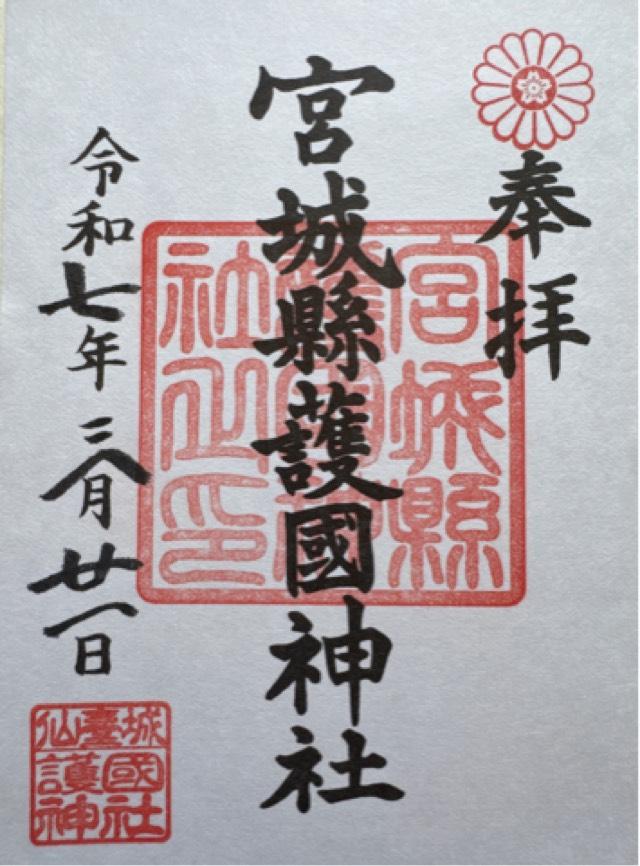 奉拝
宮城縣護國神社
令和七年三月廿一日
宮城縣
護國神
社之印
仙臺城
護國
神社